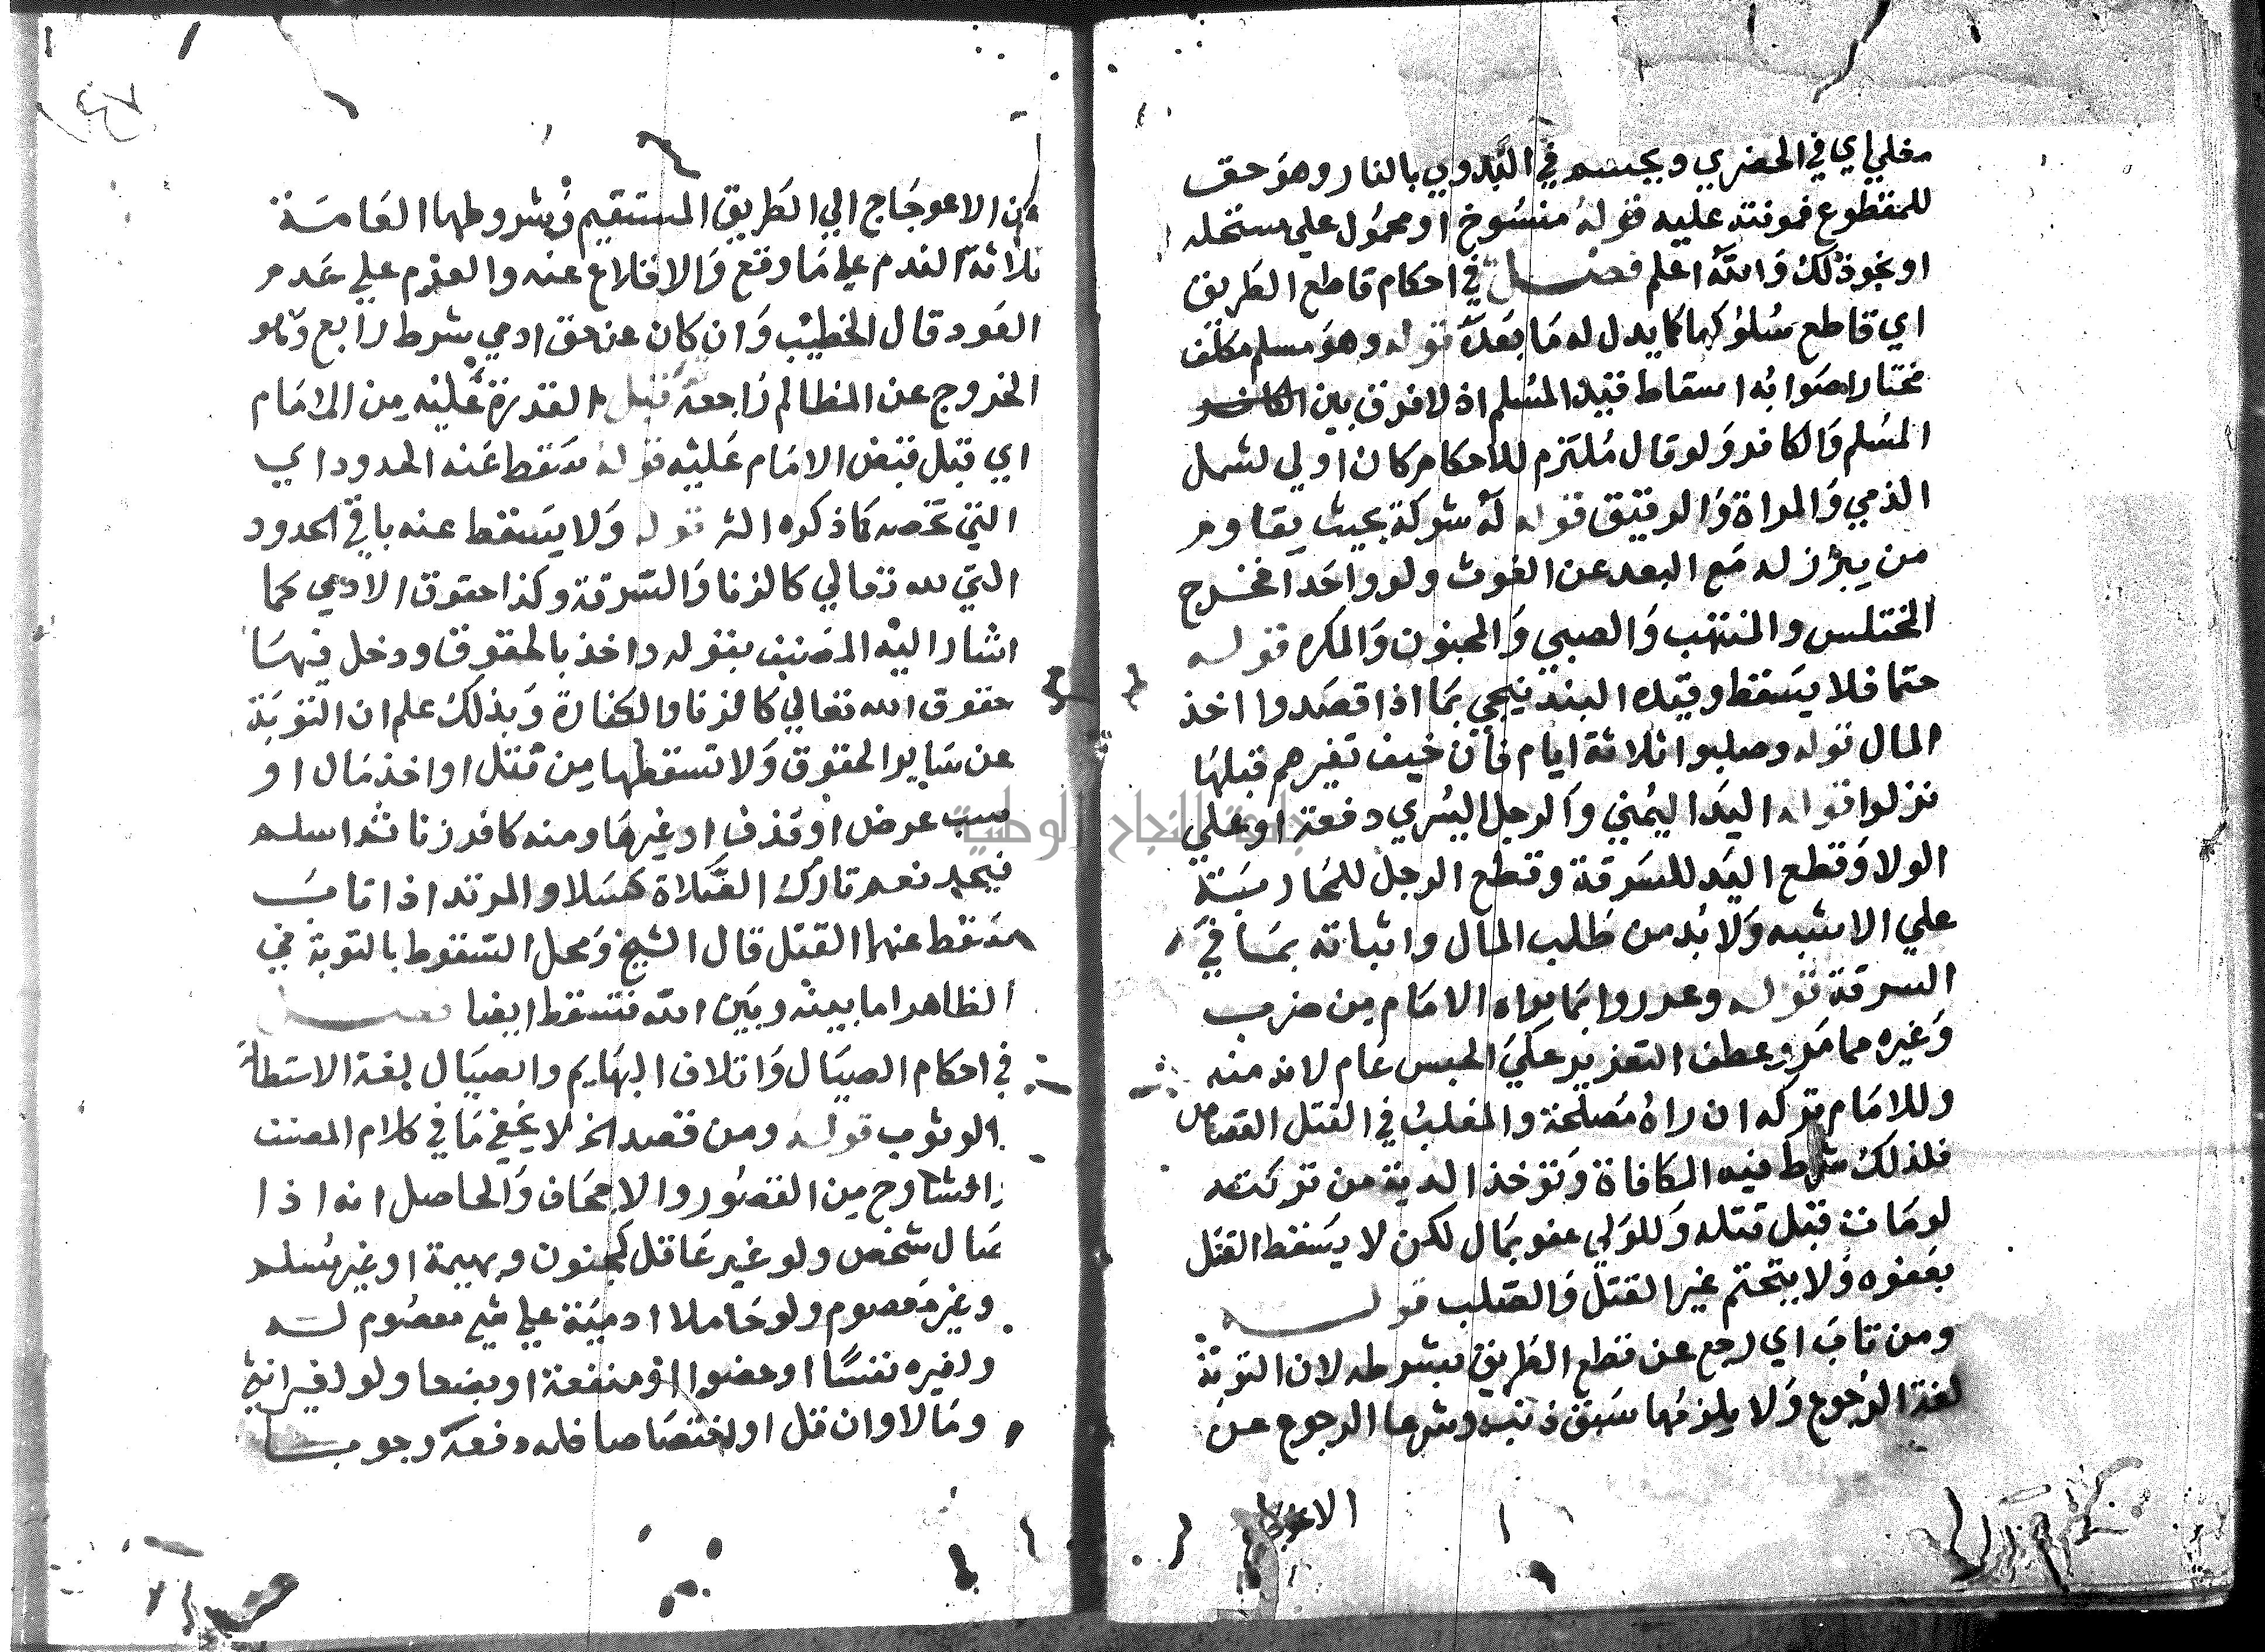 مغلي اي في الحضري ويحسم في البدوي بالنار وهو حق
للمقطوع فمونته عليه قوله منسوخ او محمول علي مستحله
او نحو ذلك والله اعلم فصل في احكام قاطع الطريق
اي قاطع سلوكها كما يدل له ما بعده قوله وهو مسلم مكلف
مختار صوابه اسقاط قيد المسلم اذ لا فرق بين
المسلم والكافر ولو قال ملتزم للاحكام كان اولي لشمل
الذمي والمراة والرقيق قوله له شوكة بحيث يقاوم
من يبرز له مع البعد عن الغوث ولو واحدا فخرج
المختلس والمنتهب والصبي والمجنون والمكره قوله
حتما فلا يسقط وقيده البندنيجي بما اذا قصدوا اخذ
المال قوله وصلبوا ثلاثة ايام فان خيف تغيرهم قبلها
نزلوا قوله اليد اليمني والرجل اليسري دفعة او علي
الولا وقطع اليد للسرقة وقطع الرجل للمحاربة
علي الاشبه ولا بد من طلب المال واثباته بما في
السرقة قوله وعزروا بما يراه الامام من ضرب
وغيره مما مر وعطف التعزير علي الحبس عام لانه منه
وللامام تركه ان راه مصلحة والمغلب في القتل القصاص
فلذلك شرط فيه المكافاة وتوخذ الدية من تركته
لو مات قبل قتله وللولي عفو بمال لكن لا يسقط القتل
بعفوه ولا يتحتم غير القتل والصلب قوله
ومن تاب اي رجع عن قطع الطريق بشرطه لان التوبة
لغة الرجوع ولا يلزمها سبق ذنب وشرعا الرجوع عن
الاعوجا
عن الاعوجاج الي الطريق المستقيم وشروطها العامة
ثلاثة الندم علي ما وقع والاقلاع عنه والعزم علي عدم
العود قال الخطيب وان كان عن حق ادمي بشرط رابع وهو
الخروج عن المظالم راجعه قبل القدرة عليه من الامام
اي قبل قبض الامام عليه قوله سقط عنه الحدود اي
التي تخصه كما ذكره الش قوله ولا يسقط عنه باقي الحدود
التي لله تعالي كالزنا والسرقة وكذا حقوق الادمي كما
اشار اليه المصنف بقوله واخذ بالحقوق ودخل فيها
حقوق الله تعالي كالزنا والكفارة وبذلك علم ان التوبة
عن ساير الحقوق ولا تسقطها من قتل او اخذ مال او
سب عرض او قذف او غيرها ومنه كافر زنا ثم اسلم
فيحد نعم تارك الصلاة كسلا والمرتد اذا تاب
سقط عنهما القتل قال الشيخ ومحل السقوط بالتوبة في
الظاهر اما بينه وبين الله فتسقط ايضا فصل
في احكام الصيال واتلاف البهايم والصيال لغة الاستطالة
الوثوب قوله ومن قصد الخ لا يخفي ما في كلام المصنف
والشارح من القصور والاجحاف والحاصل انه اذا
صال شخص ولو غير عاقل كمجنون وبهيمة او غير مسلم
وغير معصوم ولو حاملا ادمية علي شي معصوم له
ولغيره نفسا او عضوا او منفعة او بضعا ولو لغير انثي
ومالا وان قل او اختصاصا فله دفعه وجوبا
جامعة النجاح الوطنية